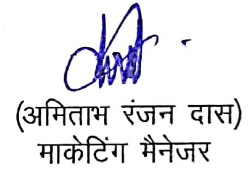 (अमिताभ रंजन दास)
माकेटिंग मैनेजर